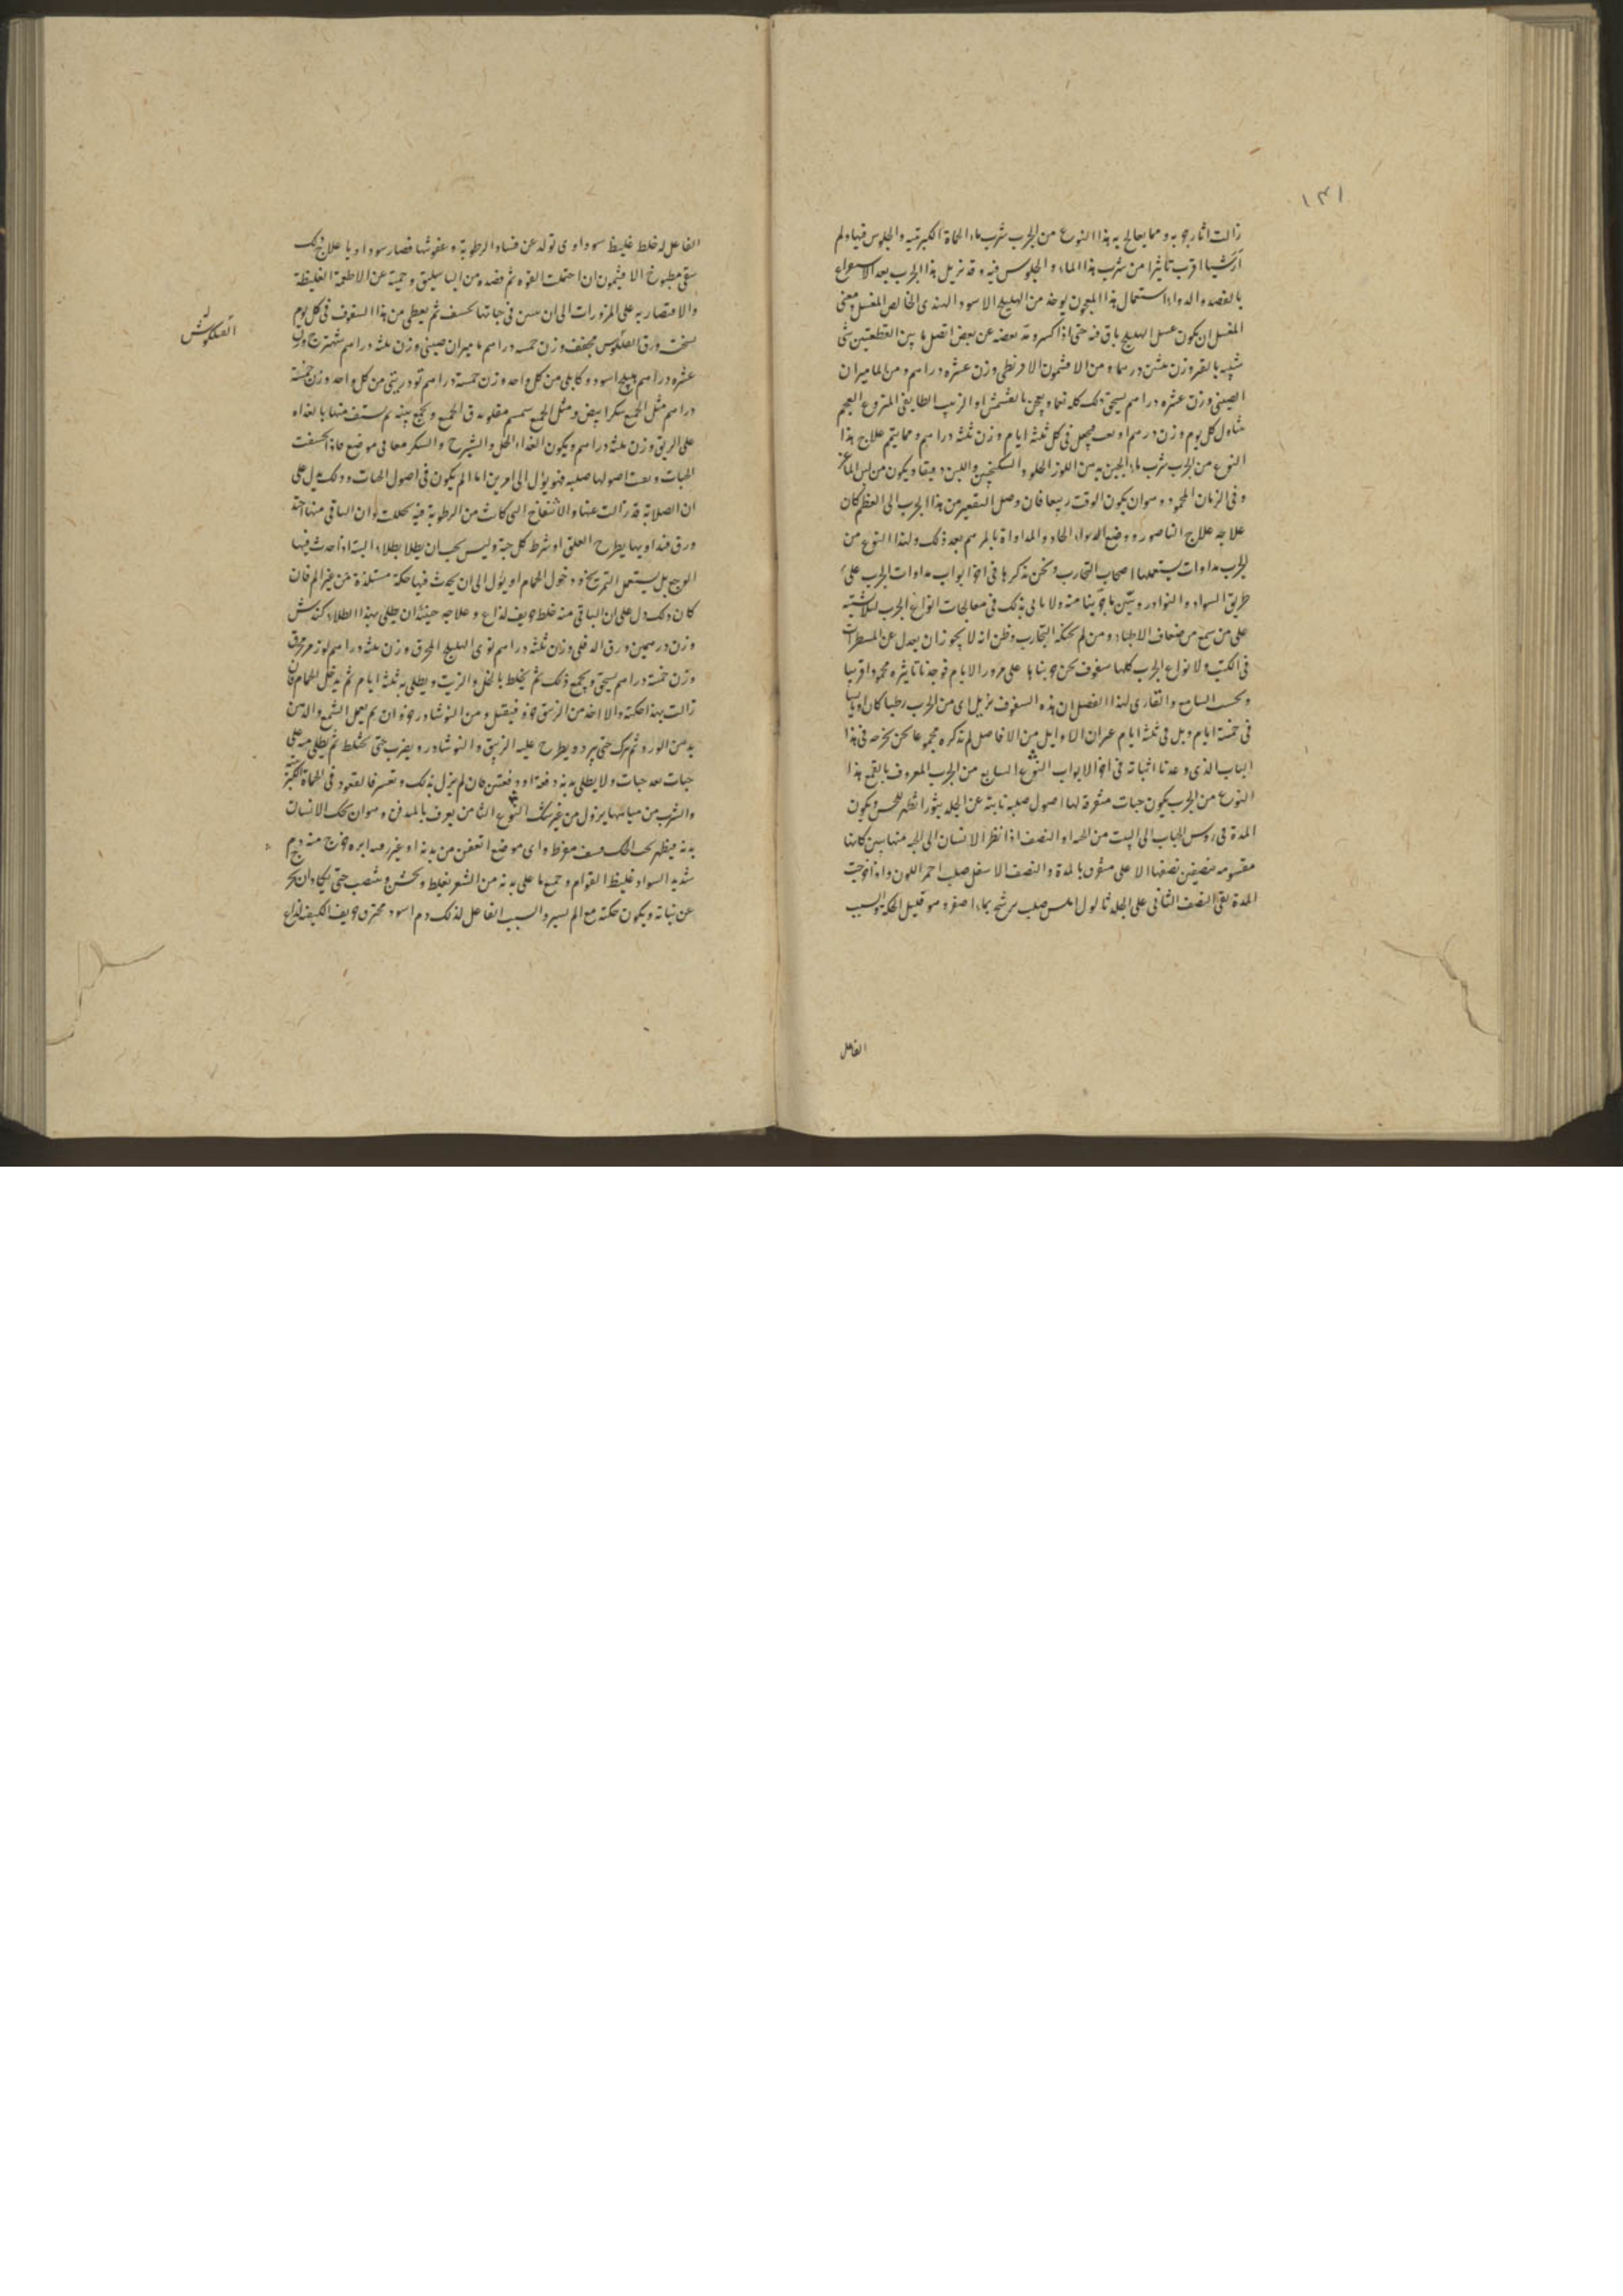 ١٣١
زالت اثار جربه ومما يعالج به هذا النوع من الجرب شرب ماء الحماة الكبريتية والجلوس فيها ولم
ار شيا اقرب تأثيرا من شرب هذا الماء والجلوس فيه وقد يزيل هذا الجرب بعد الاسراع
بالفصد والدواء استعمال هذا المعجون يوخذ من الهليلج الاسود الهندى الخالص المغسل ومعنى
المغسل ان يكون عسل الهليلج باق فيه حتى اذا كسر وفه بعضه عن بعض اتصل ما بين القطعتين شى
شبيه بالقير وزن عشرين درهما ومن الافثيمون الاقريطى وزن عشره دراهم ومن الماميران
الصينى وزن عشره دراهم يسحق ذلك كله نعما ويعجن بالقشمش او الزبيب الطايفى المنزوع العجم
يتناول كل يوم وزن درهم او يجعل فى كل ثلثة ايام وزن ثلثه دراهم ومما يتم علاج هذا
النوع من الجرب شرب ماء الجبن بدهن اللوز الحلو والسكنجبين واللبن دقيقا ويكون من لبن الماعز
وفى الزمان المحمود وهو ان يكون الوقت ربيعا فان وصل التقعير من هذا الجرب الى العظم كان
علاجه علاج الناصور ووضع الدواء الحاد والمداواة بالمرهم بعد ذلك ولهذا النوع من
الجرب مداوات يستعملها اصحاب التجارب ونحن نذكرها فى اخر ابواب مداوات الجرب على
طريق السواد والنوادر ونبين ما جربنا منه ولا ناتى بذلك فى معالجات انواع الجرب لئلا يشتبه
على من سمع من ضعاف الاطباء ومن لم تحنكه التجارب وظن انه لا يجوز ان يعدل عن المسطرات
فى الكتب ولانواع الجرب كلها سفوف نحن جربناها على مرور الايام فوجدنا تاثيره محمودا قريبا
وبحسب السامع والقارى لهذا الفصل ان هذه السفوف يزيل اى من الجرب رطبا كان او يابسا
فى خمسة ايام وبل فى ثلثة ايام غير ان الاوايل من الافاضل لم تذكره مجموعا نحن نخرجه فى هذا
الباب الذى وعدنا اثباته فى اخر الابواب النوع السابع من الجرب المعروف بالقمع هذا
النوع من الجرب يكون حبات متفرقة لها اصول صلبة نابتة عن الجلد بثورا تظهر للحس ويكون
المدة فى روس الحباب الى البت من الحد او النصف اذا نظر الانسان الى الحبه منها تبين كانها
مقسومه بنصفين نصفها الاعلى مشرق بالمدة والنصف الاسفل صلب احمر اللون واذا خرجت
المدة بقى النصف الثانى على الجلد ثالول املس صلب يرشح بماء اصفر وهو قليل الحكة والسبب
الفاعل
الفاعل له خلط غليظ سوداوى تولد عن فساد الرطوبة وعفونتها فصار سوداويا علاج ذلك
سقى مطبوخ الافثيمون ان احتملت القوه ثم فصده من الباسليق وحميته عن الاطعمة الغليظة
والاقتصار به على المزورات الى ان يتبين فى حباتها تحسف ثم يعطى من هذا السفوف فى كل يوم
نسخته ورق الفلكوس مجفف وزن خمسه دراهم ماميران صينى وزن ثلثه دراهم شهترج وزن
القنلكوش
عشره دراهم هليلج اسود وكابلى من كل واحد وزن خمسة دراهم تودريتى من كل واحد وزن خمسة
دراهم مثل الجميع سكر ابيض ومثل الجميع سمسم مقلو يدق الجميع ويجمع بينه ثم يستف منها بالغداه
على الريق وزن ثلثه دراهم ويكون الغداء الخل والشيرج والسكر معا فى موضع ماء فاذا تحسفت
الحبات وبقت اصولها صلبه فهو يؤل الى امرين اما الا يكون فى اصول الحبات وذلك يدل على
ان الصلابة قد زالت عنها والانتفاخ التى كانت من الرطوبة فيه تحللت وان الباقى منها حدة
ورق فنداويها بطرح العلق او شرط كل حبة وليس يجب ان يطلا بطلاء البته اذا حدث فيها
الوجع بل يستعمل التمريخ ودخول الحمام او يؤل الى ان يحدث فيها حكة مستلذة من غير الم فان
كان ذلك دل على ان الباقى منه خلط حريف لذاع وعلاجه حينئذ ان يطلى بهذا الطلاء كندش
وزن درهمين ورق الدفلى وزن ثلثه دراهم نوى الهليلج المحرق وزن ثلثه دراهم لوز مر محرق
وزن خمسة دراهم يسحق ويجمع ذلك ثم يخلط بالخل والزيت ويطلى به ثلثه ايام ثم يدخل الحمام فان
زالت بهذا حكته والا اخذ من الزيبق جزو فيقتل ومن النوشادر جزو ان ثم يعمل الشمع والدهن
بدهن الورد ثم يترك حتى يبرد ويطرح عليه الزيبق والنوشادر ويضرب حتى يختلط ثم يطلى منه على
حبات بعد حبات ولا يطلى بدنه دفعة او دفعتين فان لم يزل بذلك وتعسر فالقعود فى الحماة الكبريتية
والشرب من مياهها يزول من غير شك النوع الثامن يعرف بالمدفن وهو ان يحك الانسان
بدنه فيظهر تحت الحك مفرط واى موضع اتفق من بدنه او غرز فيه ابره خرج منه دم
شديد السواد غليظ القوام وجميع ما على بدنه من الشعر يغلظ ويخشن وينتصب حتى يكاد ان يخرج
عن نباته ويكون حكته مع الم يسير والسبب الفاعل لذلك دم اسود محترق حريف الكيفية لذاع